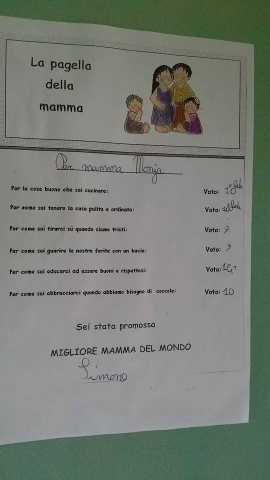 La pagella
della
mamma
Per mamma Monja
Per le cose buone che sai cucinare: Voto: 10
Per come sai tenere la casa pulita e ordinata: Voto:
Per come sai tirarci sù quando siamo tristi: Voto: 9
Per come sai guarire le nostre ferite con un bacio: Voto: 9
Per come sai educarci ad essere buoni e rispettosi: Voto: 10
Per come sai abbracciarci quando abbiamo bisogno di coccole: Voto: 10
Sei stata promossa
MIGLIORE MAMMA DEL MONDO
Simone